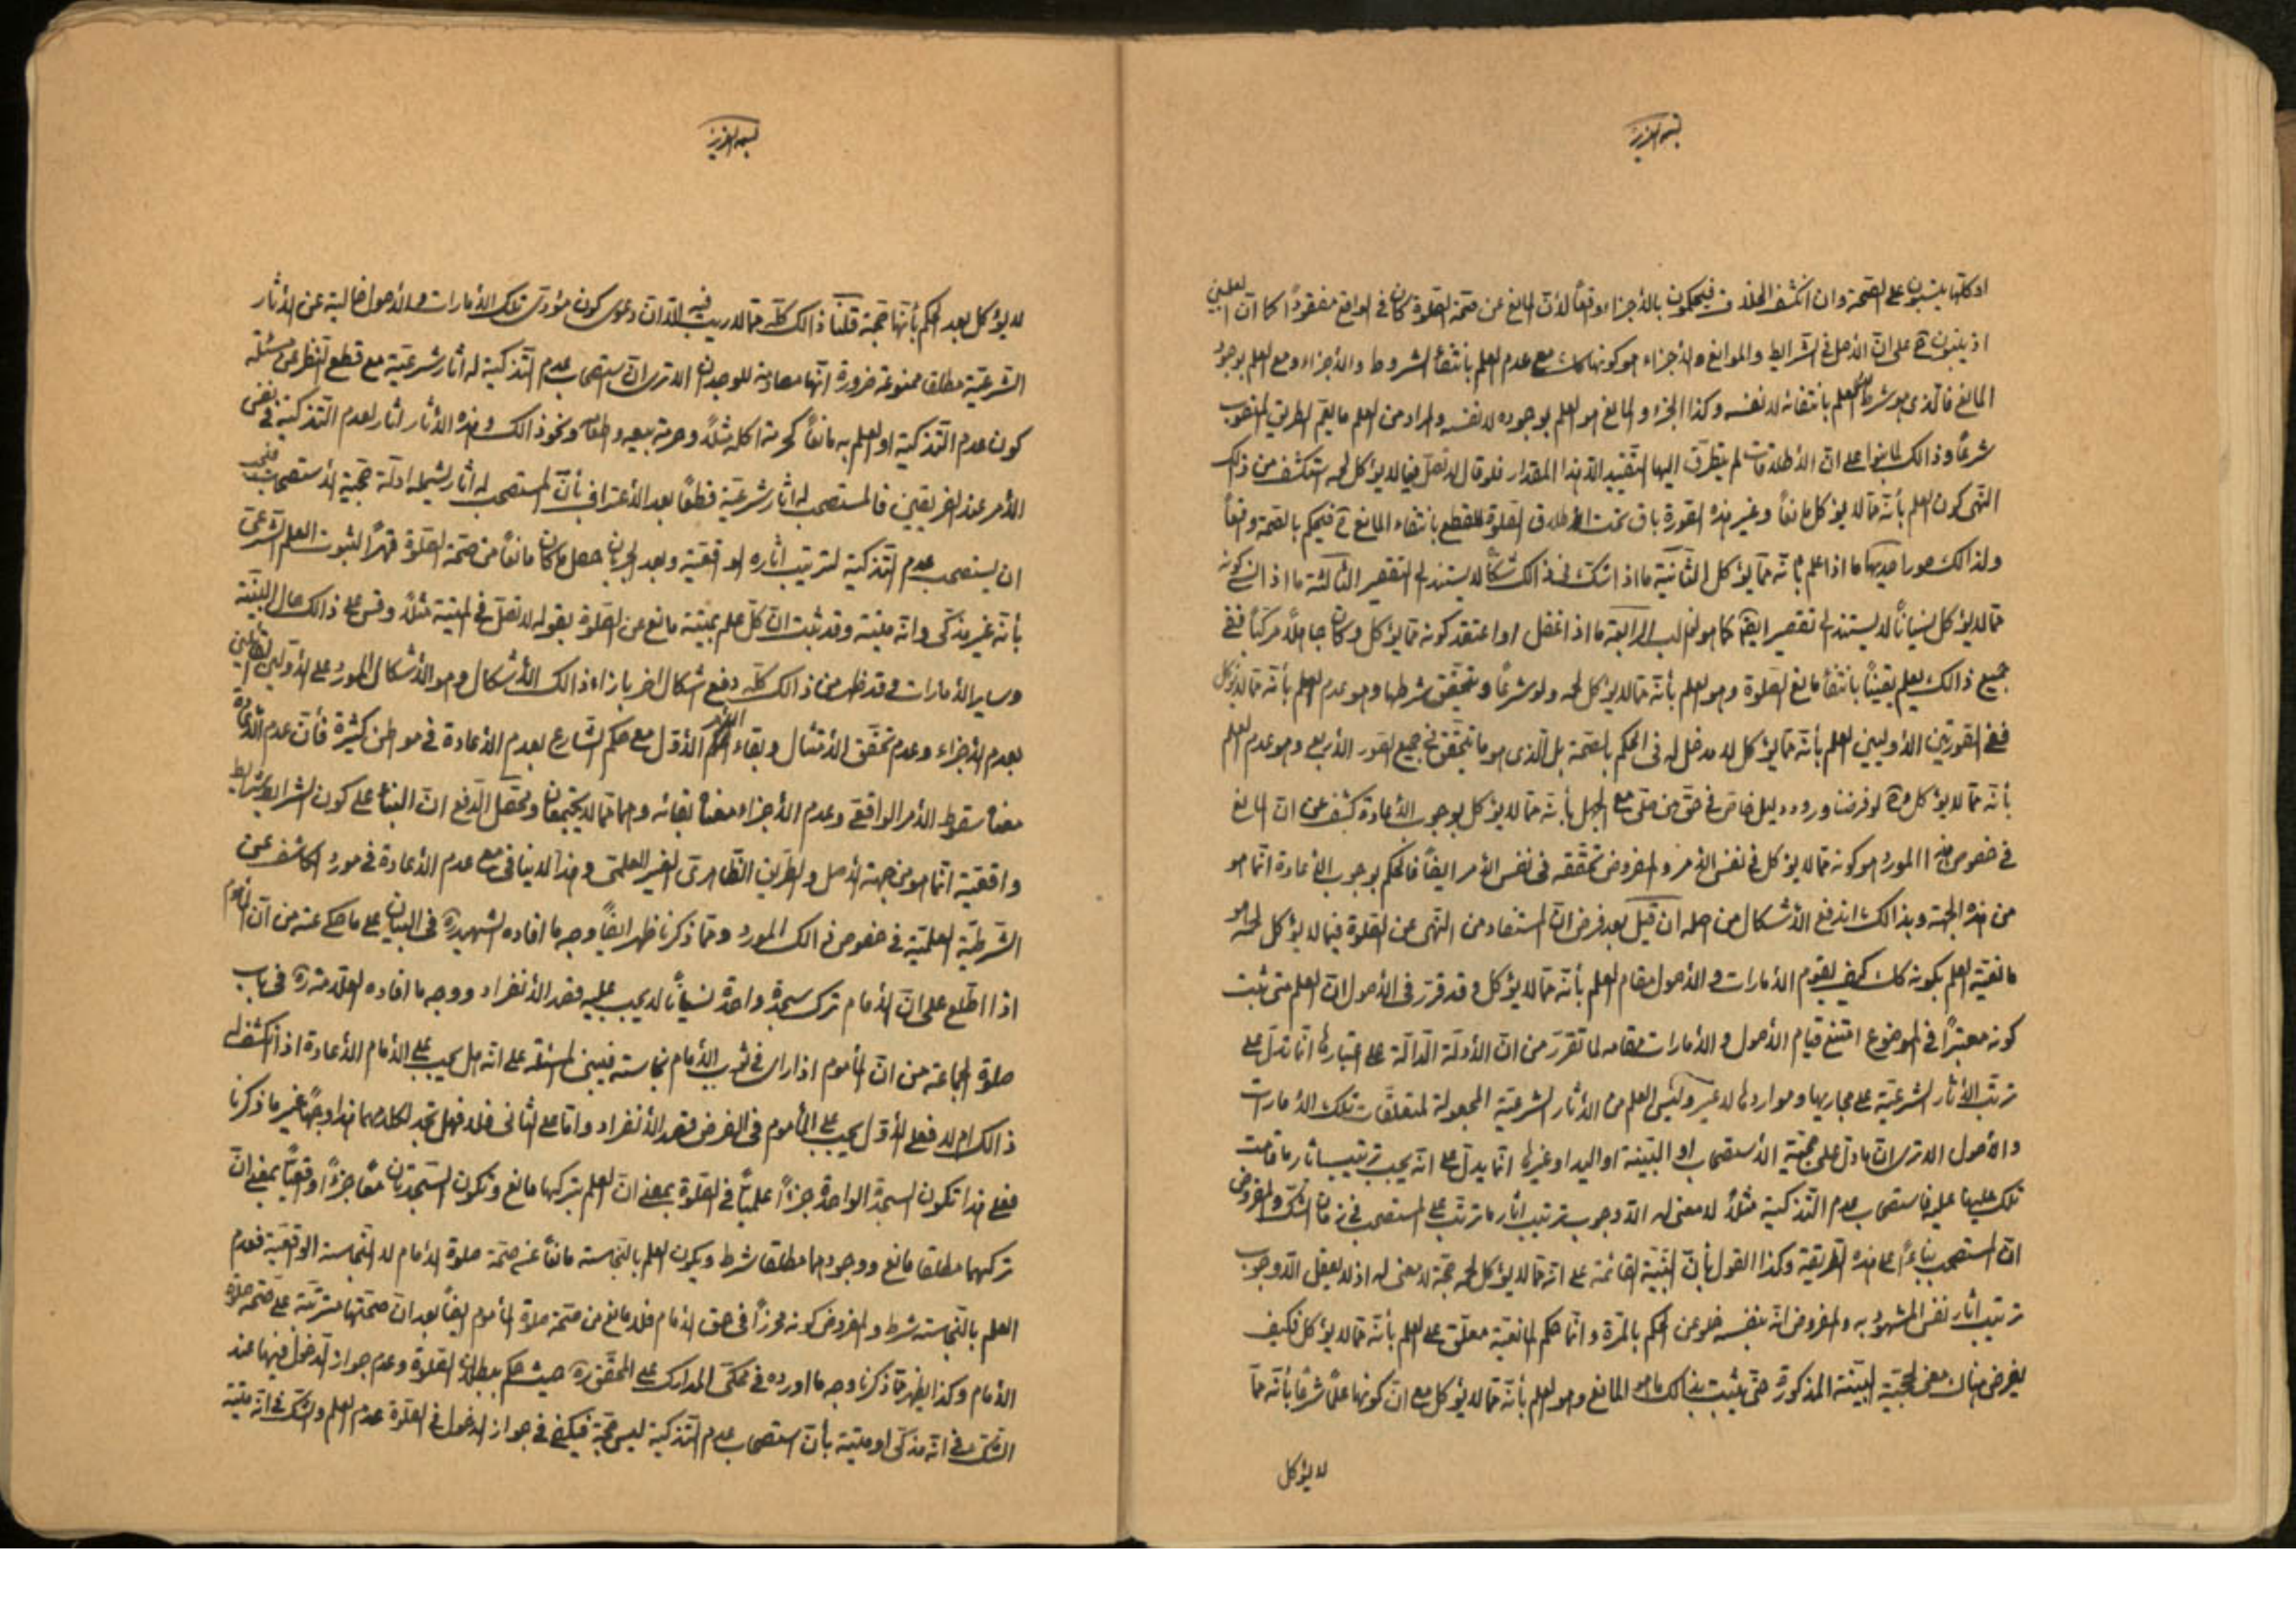 بسمه العزیز
او كلتها يبنون على الصحة وان انكشف الخلاف فيحكمون بالاجزاء واقعاً لانّ المانع عن صحة الصلوة كان في الواقع مفقوداً كما انّ العلميين
اذ يبنون على انّ الاصل في الشرايط والموانع والاجزاء هو كونها كك مع عدم العلم بانتفاء الشروط والاجزاء ومع العلم بوجود
المانع فالذى هو شرط العلم بانتفائه لا نفسه وكذا الجزء والمانع هو العلم بوجوده لا نفسه والمراد من العلم ما يعم الطريق المنصوب
شرعاً وذالك لما بنوا على انّ الاطلاقات لم يتطرق اليها التقييد الا بهذا المقدار فلو قال لا تصلّ فيما لا يؤكل لحمه تنكشف من ذالك
النهى كون العلم بأنّه ممّا لا يؤكل مانعاً وغير هذه الصورة باق تحت اطلاق الصلوة للقطع بانتفاء المانع فيحكم بالصحة واقعاً
ولذالك صور احديها ما اذا علم بأنّه ممّا يؤكل الثانية ما اذا شكّ في ذالك شكّاً لا يستند الى التقصير الثالثة ما اذا نسى كونه
ممّا لا يؤكل نسياناً لا يستند الى تقصير ايضا كما هو الغالب الرابعة ما اذا غفل او اعتقد كونه ممّا يؤكل وكان جاهلاً مركباً ففى
جميع ذالك يعلم يقيناً بانتفاء مانع الصلوة وهو العلم بأنّه ممّا لا يؤكل لحمه ولو شرعاً وتحقّق شرطها وهو عدم العلم بأنّه ممّا لا يؤكل
ففى الصورتين الاوليين العلم بأنّه ممّا يؤكل لا مدخل له فى الحكم بالصحة بل الذى هو ما تحقّق في جميع الصور الاربع وهو عدم العلم
بأنّه ممّا لا يؤكل لو فرضنا ورود دليل خاص فى حق من صلّى مع الجهل بأنّه ممّا لا يؤكل بوجوب الاعادة كشف عن انّ المانع
فى خصوص هذا المورد هو كونه ممّا لا يؤكل فى نفس الامر والمفروض تحقّقه فى نفس الامر ايضاً فالحكم بوجوب الاعادة انّما هو
من هذه الجهة وبذالك اندفع الاشكال من اصله ان قيل بعد فرض انّ المستفاد من النهى عن الصلوة فيما لا يؤكل لحمه هو
مانعيّة العلم بكونه كك كيف يقوم الامارات والاصول مقام العلم بأنّه ممّا لا يؤكل وقد قرّر فى الاصول انّ العلم متى ثبت
كونه معتبراً فى الموضوع امتنع قيام الاصول والامارات مقامه لما تقرّر من انّ الادلّة الدالّة على اعتبارها انّما تدلّ على
ترتّب الآثار الشرعيّة على مجاريها ومواردها لا غير وليس العلم من الآثار الشرعيّة المجعولة لمتعلّقات تلك الامارات
والاصول الا ترى انّ ما دلّ على حجيّة الاستصحاب او البيّنة او اليد او غيرها انّما يدلّ على انّه يجب ترتيب اثار ما قامت
تلك عليها عليه فاستصحاب عدم التذكية مثلاً لا معنى له الّا وجوب ترتيب اثار ما ترتّب على المستصحب فى زمان الشكّ والمفروض
انّ المستصحب بناءاً على هذه الطريقة وكذا القول بأنّ البيّنة القائمة على انّه ممّا لا يؤكل لحمه حجّة لا معنى له اذ لا يعقل الّا وجوب
ترتيب اثار نفس المشهود به والمفروض انّه بنفسه خلو عن الحكم بالمرّة وانّما حكم المانعيّة معلّق على العلم بأنّه ممّا لا يؤكل فكيف
يفرض هناك معنى لحجيّة البيّنة المذكورة حتّى يثبت بذالك ما هو المانع وهو العلم بأنّه ممّا لا يؤكل مع انّ كونها علماً شرعاً بأنّه ممّا
لا يؤكل
بسمه العزیز
لا يؤكل بعد الحكم بأنّها حجّة قلنا ذالك كلّه ممّا لا ريب فيه الّا انّ دعوى كون مؤدّى تلك الامارات والاصول خالية عن الاثار
الشرعيّة مطلقا ممنوعة ضرورة انّها مصادمة للوجدان الا ترى انّ استصحاب عدم التذكية له اثار شرعيّة مع قطع النظر عن مسئلة
كون عدم التذكية او العلم به مانعاً كحرمة اكله مثلاً وحرمة بيعه ونحو ذالك وهذه الاثار اثار لعدم التذكية فى نفس
الامر عند الفريقين فالمستصحب له اثار شرعيّة قطعاً بعد الاعتراف بأنّ المستصحب له اثار يشمله ادلّة حجيّة الاستصحاب
ان يستصحب عدم التذكية لترتيب اثاره الواقعيّة وبعد الجريان حصل ما كان مانعاً من صحّة الصلوة قهراً لثبوت العلم الشرعى
بأنّه غير مذكّى وانّه ميتة وقد ثبت انّ كلّ علم بميتة مانع عن الصلوة بقوله لا تصلّ فى الميتة مثلاً وقس على ذالك حال البيّنة
وساير الامارات وقد ظهر من ذالك كلّه دفع اشكال اخر بازاء ذالك الاشكال وهو الاشكال المورد على الاوليين القائلين
بعدم الاجزاء وعدم تحقّق الامتثال وبقاء الامر الاوّل مع حكم الشارع بعدم الاعادة فى مواطن كثيرة فأنّ عدم الاعادة
معناه سقوط الامر الواقعى وعدم الاجزاء معناه بقائه وهما ممّا لا يجتمعان ومحصّل الدفع انّ البناء على كون الشرايط شرايط
واقعيّة انّما هو من جهة الاصل والطريق الظاهرى الغير العلمى وهذا لا ينافى مع عدم الاعادة فى مورد الكاشف عن
الشرطيّة العلميّة فى خصوص ذالك المورد وممّا ذكرنا ظهر ايضاً وجه ما افاده الشهيد ره فى البيان على ما حكى عنه من انّ الماموم
اذا اطّلع على انّ الامام ترك سجدة واحدة نسياناً لا يجب عليه قصد الانفراد ووجه ما افاده العلّامة ره فى باب
صلوة الجماعة من انّ الماموم اذا راى فى ثوب الامام نجاسة فيبنى المسئلة على انّه هل يجب على الامام الاعادة اذا انكشف له
ذالك ام لا فعلى الاوّل يجب على المأموم فى الفرض قصد الانفراد وامّا على الثانى فلا فهل تجد لكلامهما هذا وجهاً غير ما ذكرنا
فعلى هذا تكون السجدة الواحدة جزءاً علميّاً فى الصلوة بمعنى انّ العلم بتركها مانع وتكون السجدتان معاً جزءاً واقعيّاً بمعنى انّ
تركهما مطلقا مانع ووجودهما مطلقا شرط ويكون العلم بالنجاسة مانعاً عن صحّة صلوة الامام لا النجاسة الواقعيّة فعدم
العلم بالنجاسة شرط والمفروض كونه محرزاً فى حق الامام فلا مانع من صحّة صلاة المأموم ايضاً بعد انّ صحّتها مترتّبة على صحّة صلاة
الامام وكذا يظهر ممّا ذكرنا وجه ما اورده فى محكى المدارك على المحقّق ره حيث حكم ببطلان الصلوة وعدم جواز الدخول فيها عند
الشكّ فى انّه مذكّى او ميتة بأنّ استصحاب عدم التذكية ليس حجّة فيكفى فى جواز الدخول فى الصلوة عدم العلم والشكّ فى انّه ميتة